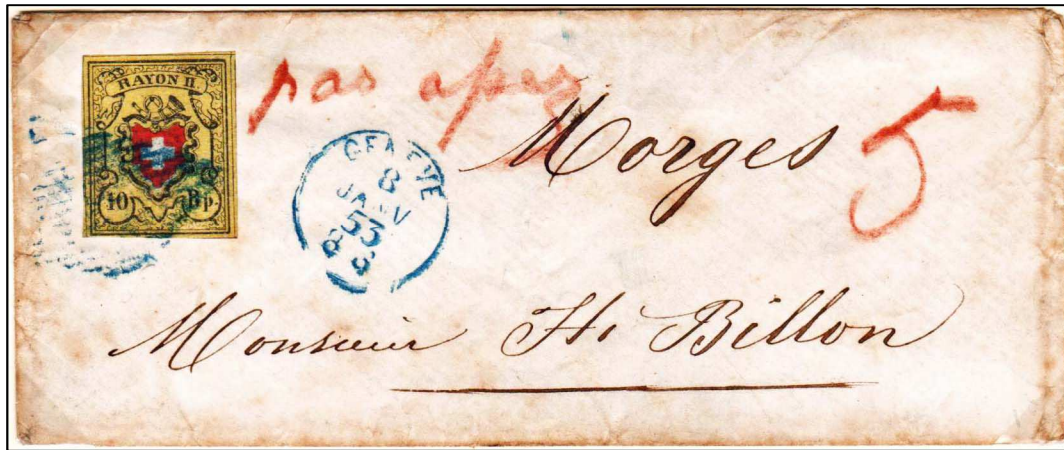 RAYON II.
10 Rp.
pas assez
GENEVE
8
JANV
53
Morges
5
Monsieur H. Billon